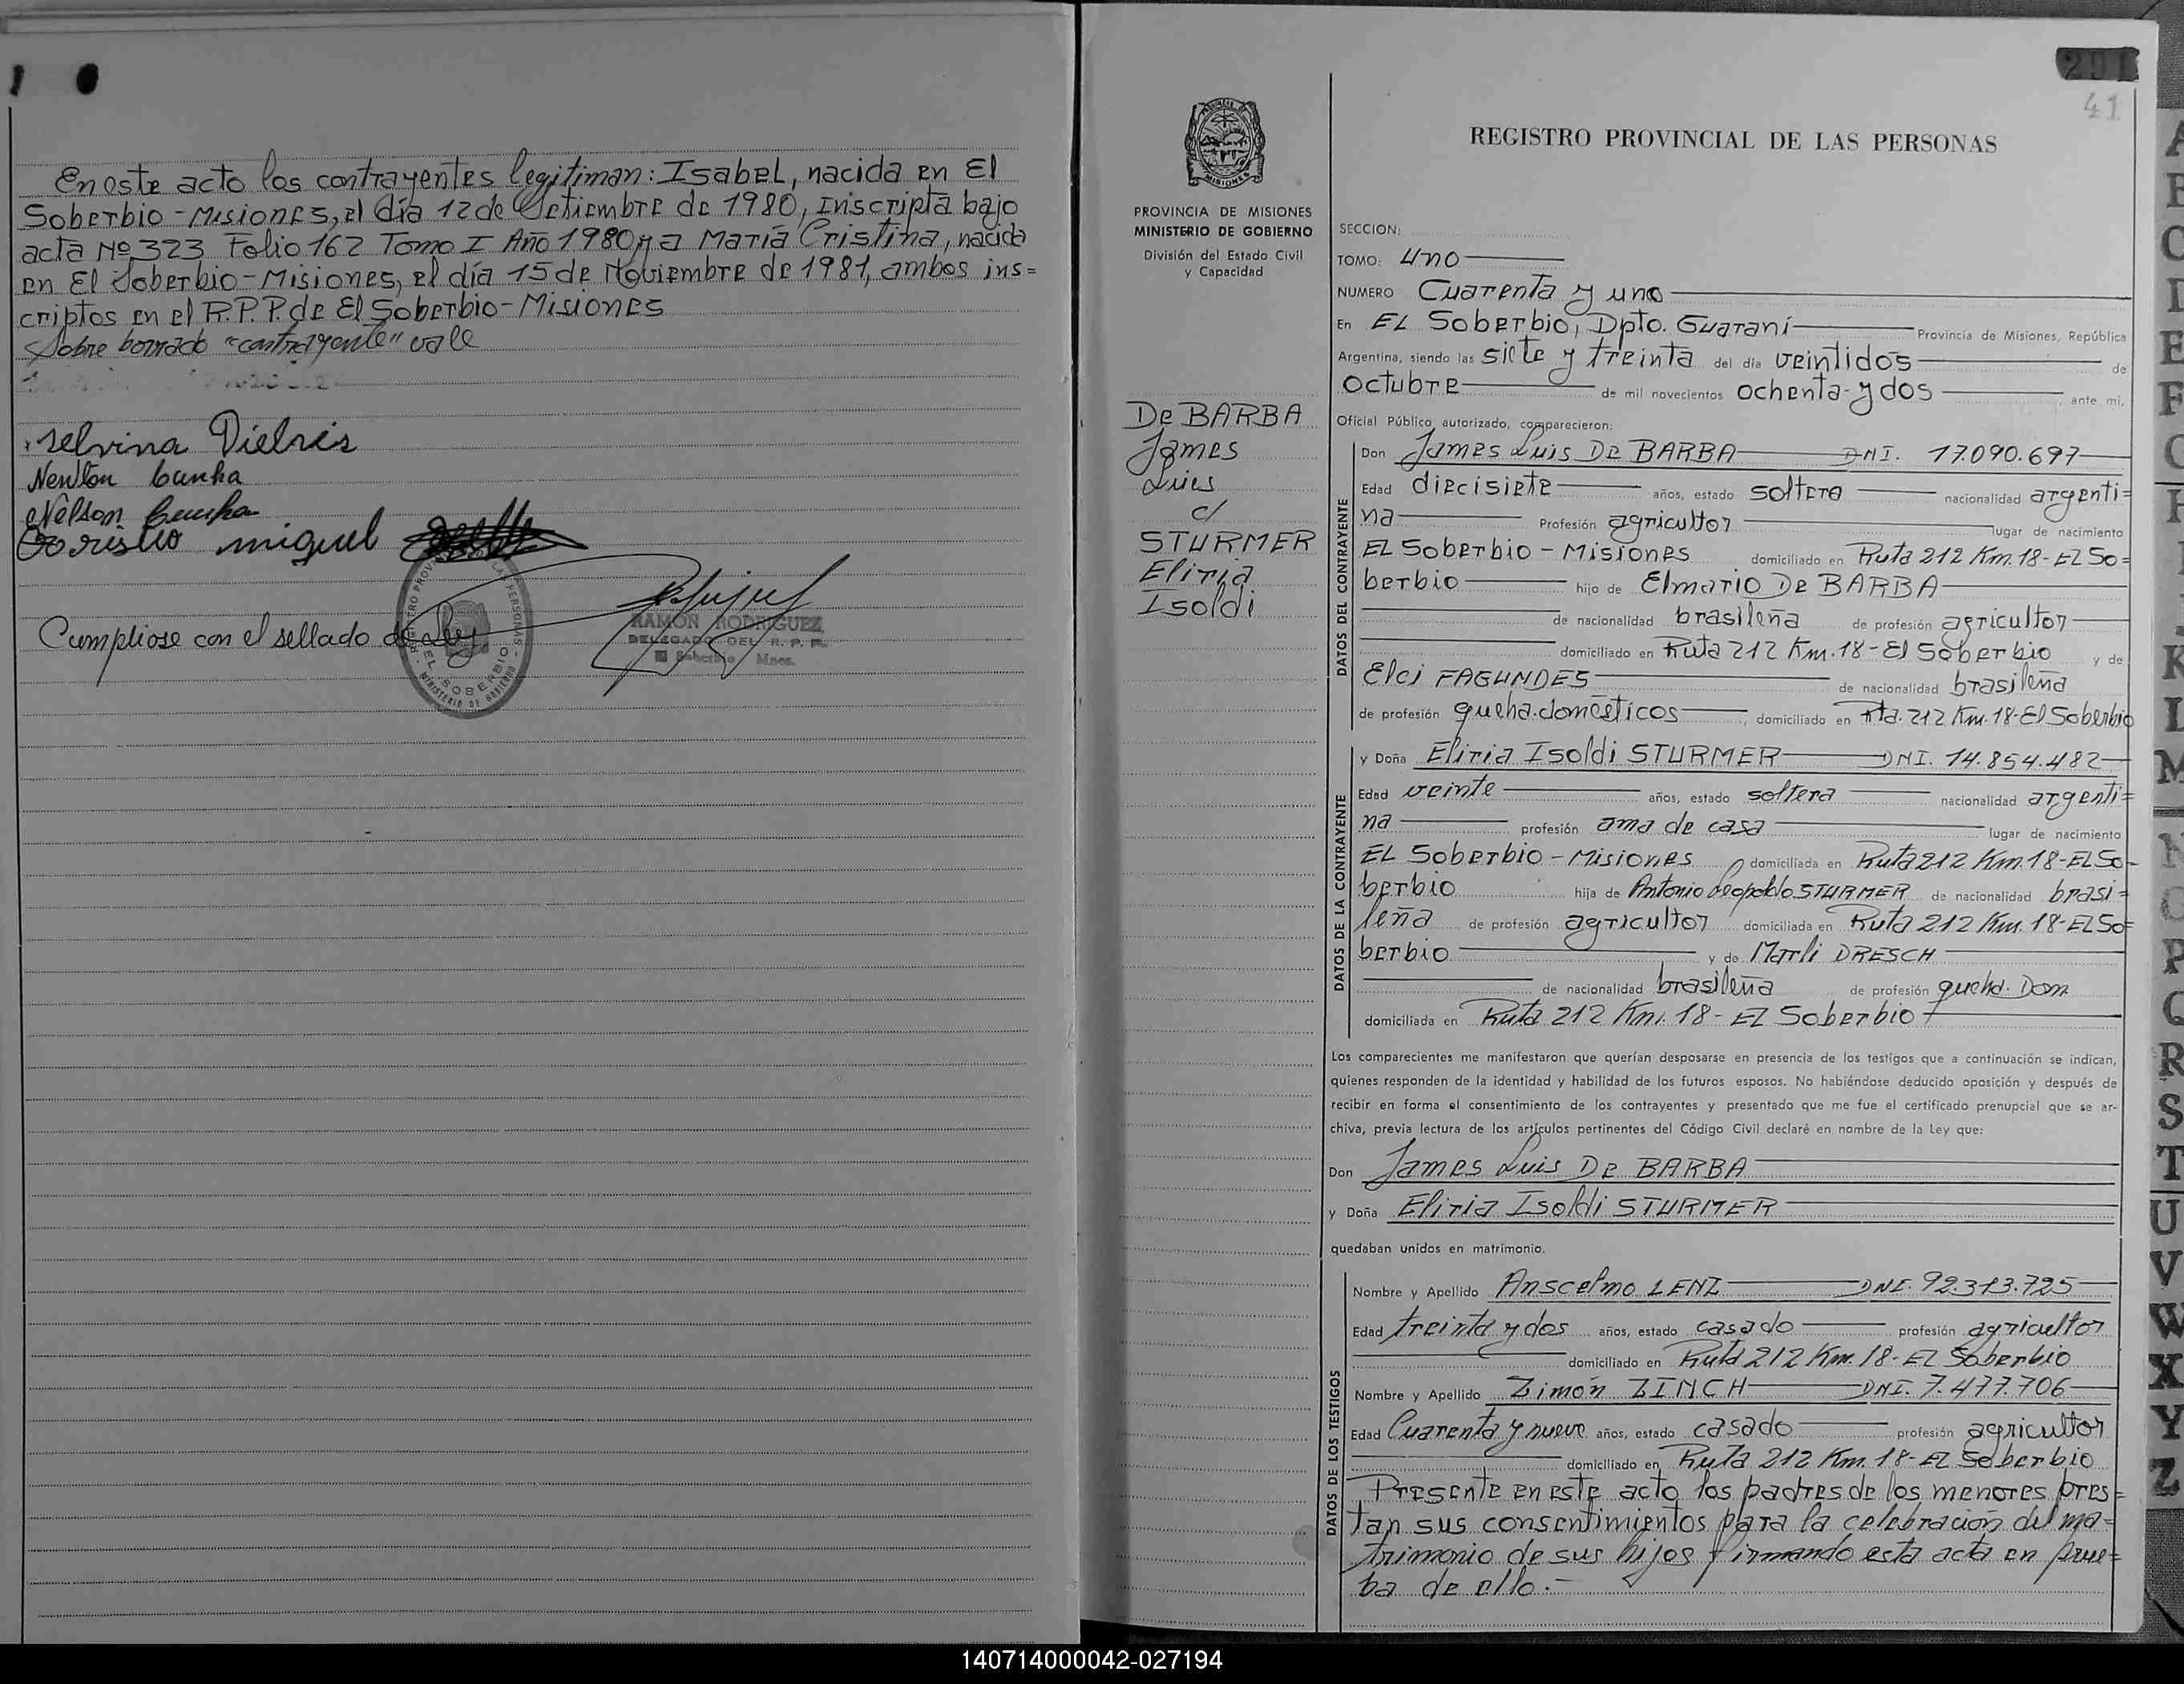 En este acto los contrayentes legitiman: Isabel, nacida en El
Soberbio - Misiones, el día 12 de Setiembre de 1980, inscripta bajo
acta Nº 323 Folio 162 Tomo I Año 1980 y a María Cristina, nacida
en El Soberbio - Misiones, el día 15 de Noviembre de 1981, ambos ins=
criptos en el R.P.P. de El Soberbio - Misiones
Sobre borrado "contrayente" vale
Selvina
Newton Cunha
Nelson Cunha
miguel
Cumpliose con el sellado de Ley
RAMON RODRIGUEZ
DELEGADO DEL R. P. P.
El Soberbio Mnes.
EL SOBERBIO
MINISTERIO DE GOBIERNO
291
41
MISIONES
PROVINCIA DE MISIONES
MINISTERIO DE GOBIERNO
División del Estado Civil
y Capacidad
De BARBA
James
Luis
c/
STURMER
Eliria
Isoldi
REGISTRO PROVINCIAL DE LAS PERSONAS
SECCION:
TOMO: Uno
NUMERO Cuarenta y uno
En EL Soberbio, Dpto. Guaraní Provincia de Misiones, República
Argentina, siendo las siete y treinta del día veintidos de
octubre de mil novecientos ochenta y dos ante mi,
Oficial Público autorizado, comparecieron:
DATOS DEL CONTRAYENTE
Don James Luis De BARBA DNI. 17.090.697
Edad diecisiete años, estado soltero nacionalidad argenti=
na Profesión agricultor lugar de nacimiento
EL Soberbio - Misiones domiciliado en Ruta 212 Km. 18 - EL So=
berbio hijo de Elmario De BARBA
de nacionalidad brasileña de profesión agricultor
domiciliado en Ruta 212 Km. 18 - El Soberbio y de
Elci FAGUNDES de nacionalidad brasileña
de profesión queha. domésticos, domiciliado en Rta. 212 Km. 18 - El Soberbio
DATOS DE LA CONTRAYENTE
y Doña Eliria Isoldi STURMER DNI. 14.854.482
Edad veinte años, estado soltera nacionalidad argenti=
na profesión ama de casa lugar de nacimiento
EL Soberbio - Misiones domiciliada en Ruta 212 Km 18 - EL So-
berbio hija de Antonio Leopoldo STURMER de nacionalidad brasi=
leña de profesión agricultor domiciliada en Ruta 212 Km. 18 - EL So=
berbio y de Marli DRESCH
de nacionalidad brasileña de profesión queha. Dom.
domiciliada en Ruta 212 Km. 18 - EL Soberbio
Los comparecientes me manifestaron que querían desposarse en presencia de los testigos que a continuación se indican,
quienes responden de la identidad y habilidad de los futuros esposos. No habiéndose deducido oposición y después de
recibir en forma el consentimiento de los contrayentes y presentado que me fue el certificado prenupcial que se ar-
chiva, previa lectura de los artículos pertinentes del Código Civil declaré en nombre de la Ley que:
Don James Luis De BARBA
y Doña Eliria Isoldi STURMER
quedaban unidos en matrimonio.
DATOS DE LOS TESTIGOS
Nombre y Apellido Anscelmo LENZ DNI. 92.313.725
Edad treinta y dos años, estado casado profesión agricultor
domiciliado en Ruta 212 Km. 18 - EL Soberbio
Nombre y Apellido Zimón ZINCH DNI. 7.477.706
Edad Cuarenta y nueve años, estado casado profesión agricultor
domiciliado en Ruta 212 Km. 18 - EL Soberbio
Presente en este acto los padres de los menores pres=
tan sus consentimientos para la celebración del ma=
trimonio de sus hijos firmando esta acta en prue=
ba de ello.-
140714000042-027194